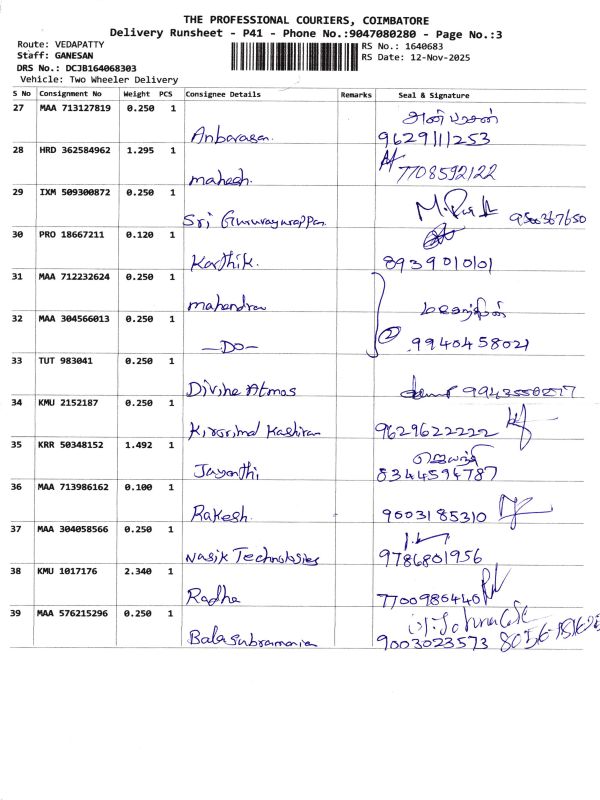 THE PROFESSIONAL COURIERS, COIMBATORE
Delivery Runsheet - P41 - Phone No.:9047080280 - Page No.:3
Route: VEDAPATTY
Staff: GANESAN
DRS No.: DCJB164068303
Vehicle: Two Wheeler Delivery
RS No.: 1640683
RS Date: 12-Nov-2025
S No Consignment No Weight PCS Consignee Details Remarks Seal & Signature
27 MAA 713127819 0.250 1
Anbarasan 9629111253
28 HRD 362584962 1.295 1
mahesh. 7708592122
29 IXM 509300872 0.250 1
Sri Guruvayurappan
30 PRO 18667211 0.120 1
Karthik. 8939010101
31 MAA 712232624 0.250 1
mahendran
32 MAA 304566013 0.250 1
—DO— 2 9940458021
33 TUT 983041 0.250 1
Divine Atmos
34 KMU 2152187 0.250 1
9629622222
35 KRR 50348152 1.492 1
ஜெயந்தி
Jayanthi 8344594787
36 MAA 713986162 0.100 1
Rakesh. 9003185310
37 MAA 304058566 0.250 1
Nasik Technologies 9786801956
38 KMU 1017176 2.340 1
Radha 7700980440
39 MAA 576215296 0.250 1
Balasubramanian 9003023573